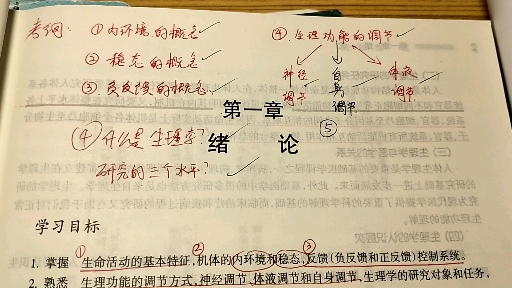 考纲: ①内环境的概念 ④.生理功能的调节
②稳态的概念
③负反馈的概念 神经调节 自身调节 体液调节
第一章 ⑤
④什么是生理学?
绪 论
研究的三个水平?
学习目标
① ② ③
1. 掌握 生命活动的基本特征,机体的内环境和稳态,反馈(负反馈和正反馈)控制系统。
2. 熟悉 生理功能的调节方式,神经调节、体液调节和自身调节,生理学的研究对象和任务,